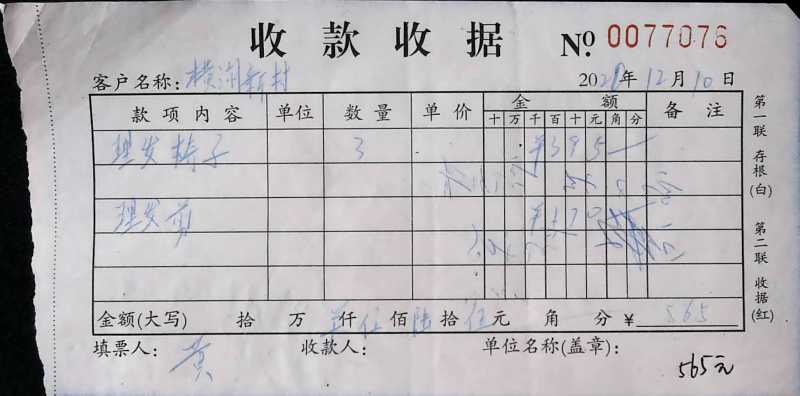 收款收据 № 0077076
客户名称: 横涧新村 202 年12月10日
款项内容 单位 数量 单价 金额 备注
十 万 千 百 十 元 角 分
理发椅子 3 ¥395—
理发剪 ¥170
金额(大写) 拾 万 仟伍佰陆拾伍元 角 分 ¥ 565
填票人: 黄 收款人: 单位名称(盖章):
565元
第一联 存根(白)
第二联 收据(红)